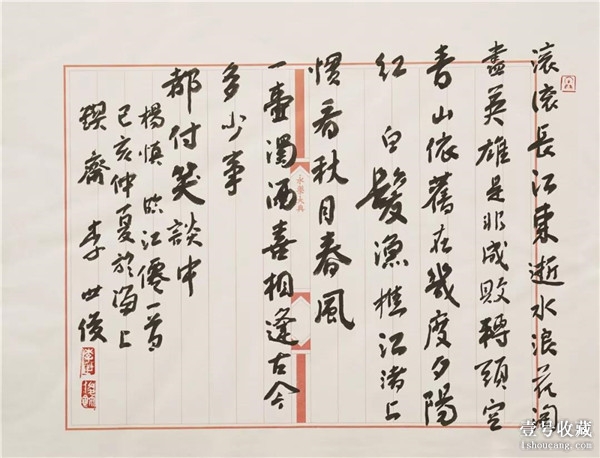 滚滚長江東逝水浪花淘
盡英雄是非成敗轉頭空
青山依舊在幾度夕陽
红 白髮漁樵江渚上
慣看秋月春風
一壺濁酒喜相逢古今
多少事
都付笑談中
楊慎臨江僊一首
己亥仲夏於海上
鍥齋 李世俊
永樂大典
壹号收藏
1shoucang.com